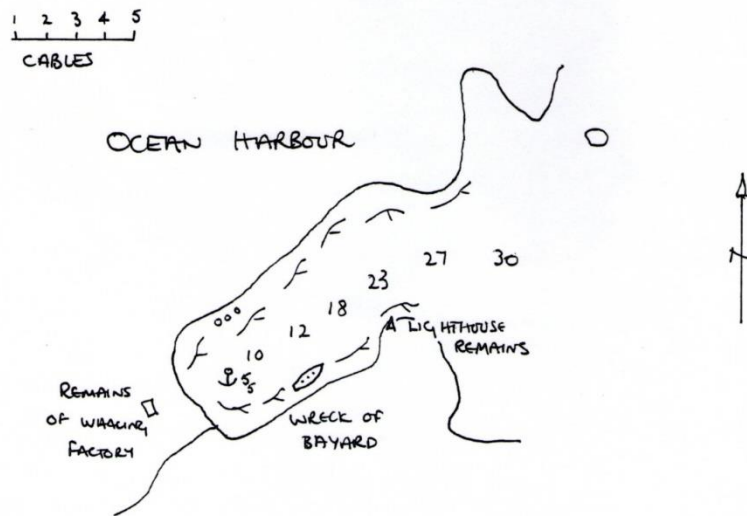 1 2 3 4 5
CABLES
OCEAN HARBOUR
N
30
27
23
18
12
10
5₅
LIGHTHOUSE
REMAINS
REMAINS
OF WHALING
FACTORY
WRECK OF
BAYARD